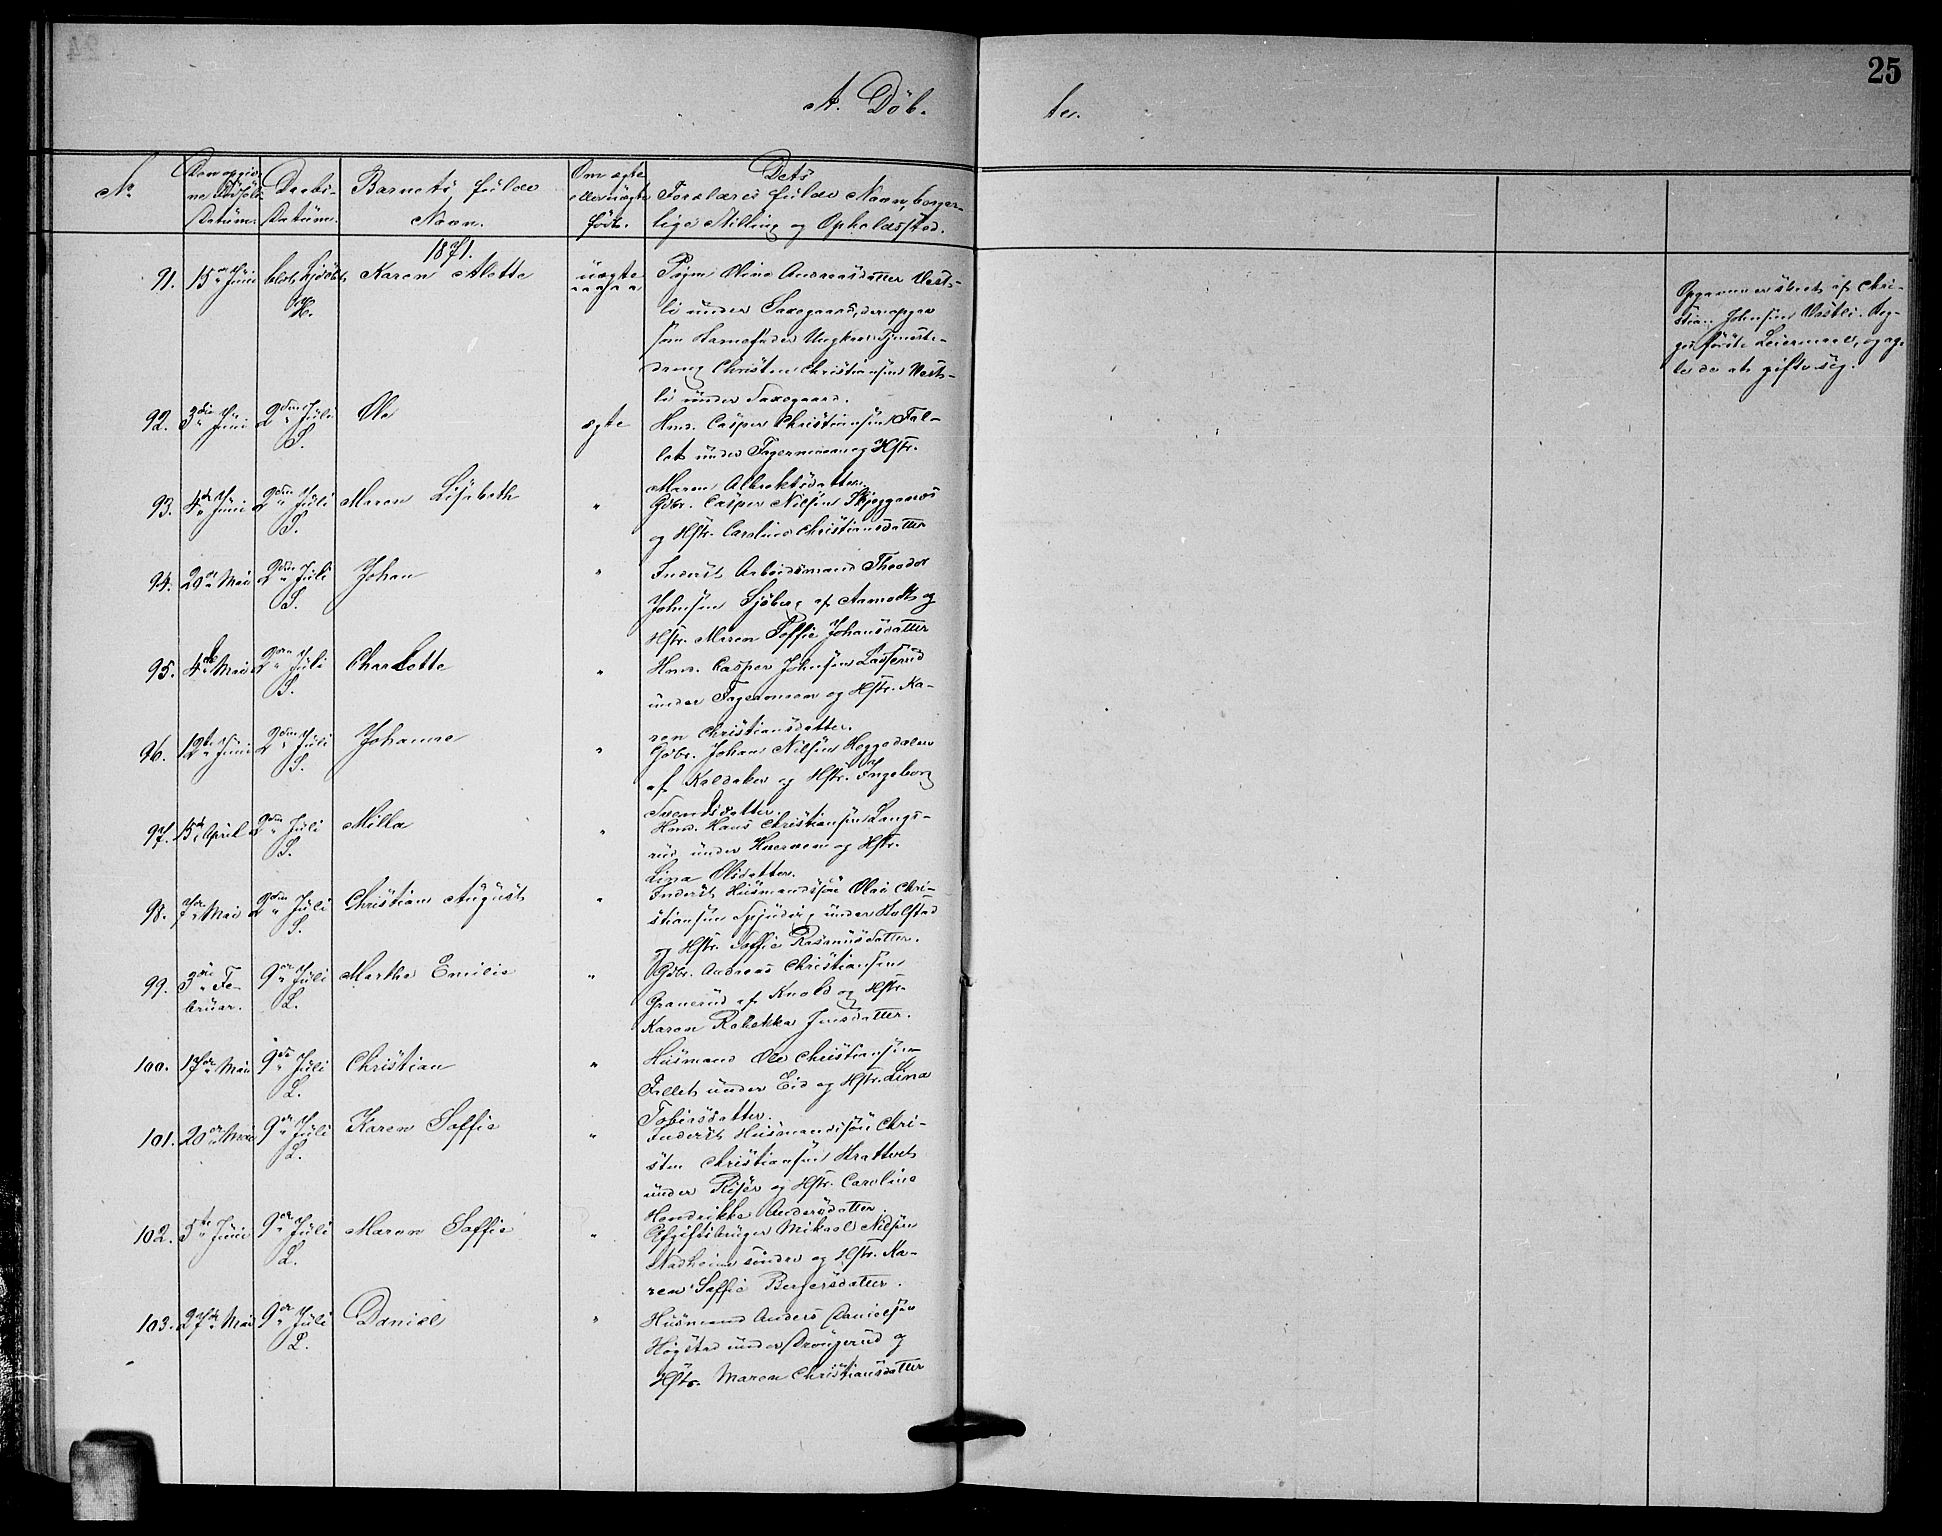 25
A. Döb-
ter.
No
Den opgivne Fødsels Datum.
Daabs-Datum.
Barnets fulde Navn.
Om ægte eller uægte født.
Dets Forældres fulde Navn, borgerlige Stilling og Opholdssted.
1871.
91. 15 Juni Karen Alette uægte Pigen Oline Andreasdatter Vest-
li under Saxegaard, der opgav
som Barnefader Ungkarl Tjeneste-
dreng Christen Christiansen Vest-
li under Saxegaard.
Opgaven er skeet af Chri-
stian Johnsen Vestli. Beg-
ges første Leiermaal, og ag-
ter de at gifte sig.
92. 3die Juni 2den Juli S. Ole ægte Hmd. Casper Christiansen Fal-
lat under Fagernæs og Hstr.
Maren Albrektsdatter.
93. 4de Juni 2den Juli S. Maren Lisabeth " Gdbr. Casper Nilsen Skjeggerud
og Hstr. Caroline Christiansdatter
94. 20de Mai 2den Juli S. Johan " Inderst Arbeidsmand Theodor
Johnsen Sjöberg af Aamodt og
Hstr. Maren Soffie Johansdatter
95. 4de Mai 2den Juli S. Charlotte " Hmd. Casper Johnsen Lasserud
under og Hstr. Ka-
ren Christiansdatter.
96. 12te Juni 2den Juli S. Johanne " Gdbr. Johan Nilsen Heggedalen
af Kaldaker og Hstr. Ingeborg
Svendsdatter.
97. 15de April 2den Juli S. Milla " Hmd. Hans Christiansen Langs-
rud under og Hstr.
Lina Olsdatter.
98. 7de Mai 2den Juli S. Christian August " Inderst Husmandssøn Olai Chri-
stiansen under Holstad
og Hstr. Soffie Rasmusdatter.
99. 3die Fe-
bruar. 9de Juli L. Marthe Emilie " Gdbr. Andreas Christiansen
Granerud af Knold og Hstr.
Karen Rebekka Jensdatter.
100. 17de Mai 9de Juli L. Christian " Husmand Ole Christiansen
Fallet under Eid og Hstr. Lina
Tobiasdatter.
101. 20de Mai 9de Juli L. Karen Soffie " Inderst Husmandssøn Chri-
sten Christiansen Krattvet
under og Hstr. Caroline
Hendrikke Andersdatter.
102. 5te Juni 9de Juli L. Maren Soffie " Afgiftsbruger Mikael Nilsen
Stadheim søndre og Hstr. Ka-
ren Soffie Bergersdatter.
103. 27de Mai 9de Juli L. Daniel " Husmand Anders Danielsen
Høgstad under og
Hstr. Maren Christiansdatter